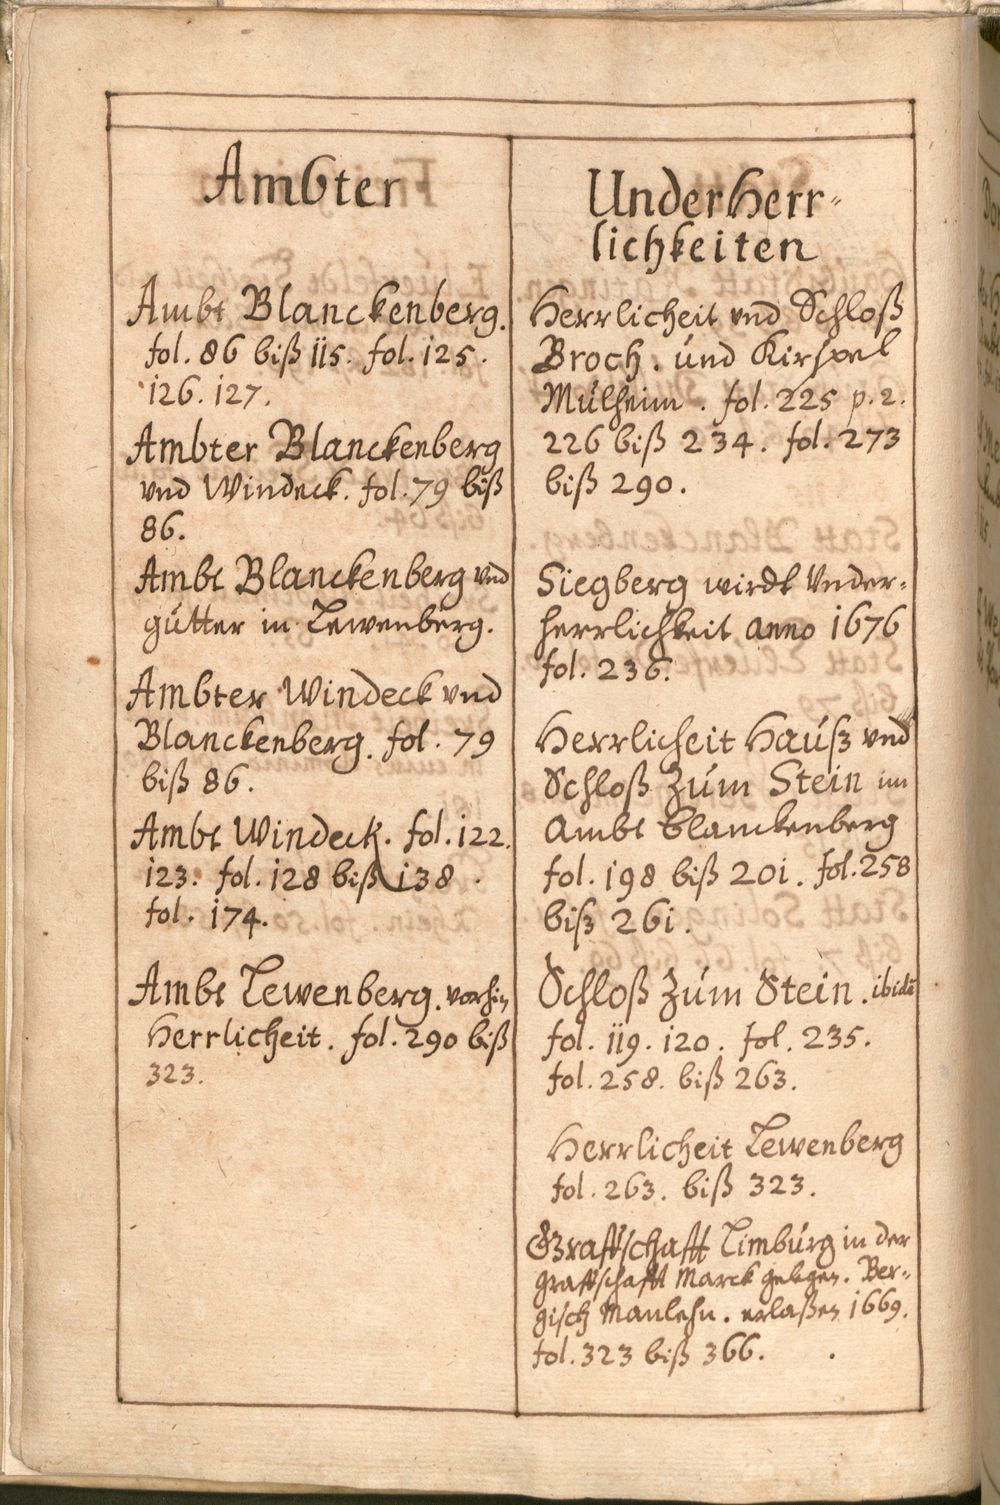 Ambter
Ambt Blanckenberg.
fol. 86 biß 115. fol. 125.
126. 127.
Ambter Blanckenberg
vnd Windeck. fol. 79 biß
86.
Ambt Blanckenberg vnd
gütter in Lewenberg.
Ambter Windeck vnd
Blanckenberg. fol. 79
biß 86.
Ambt Windeck. fol. 122.
123. fol. 128 biß 138.
fol. 174.
Ambt Lewenberg. vorhin
Herrlicheit. fol. 290 biß
323.
UnderHerr-
lichkeiten
Herrlicheit vnd Schloß
Broch. und Kirspel
Mülheim. fol. 225 p. 2.
226 biß 234. fol. 273
biß 290.
Siegberg wirdt Vnder-
herrlichkeit anno 1676
fol. 236.
Herrlicheit Hauß vnd
Schloß Zum Stein im
Ambt Blanckenberg
fol. 198 biß 201. fol. 258
biß 261.
Schloß Zum Stein. ibidē
fol. 119. 120. fol. 235.
fol. 258. biß 263.
Herrlicheit Lewenberg
fol. 263. biß 323.
Graffschafft Limburg in der
Graffschafft Marck gelegen. Ber-
gisch Manlehn. erlaßen 1669.
fol. 323 biß 366.